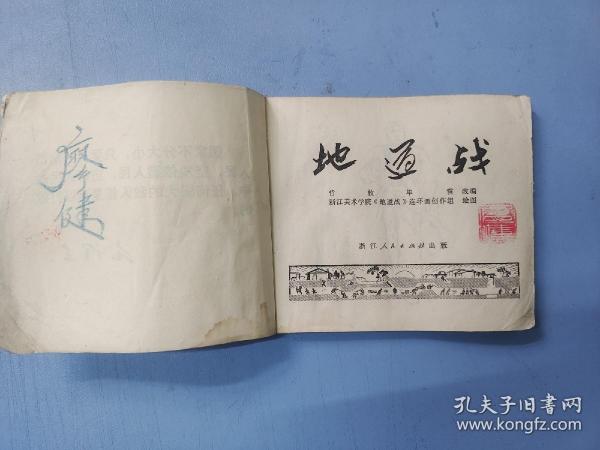 廖健
地道战
改编
浙江美术学院《地道战》连环画创作组 绘图
浙江人民出版社出版
孔夫子旧书网
www.kongfz.com